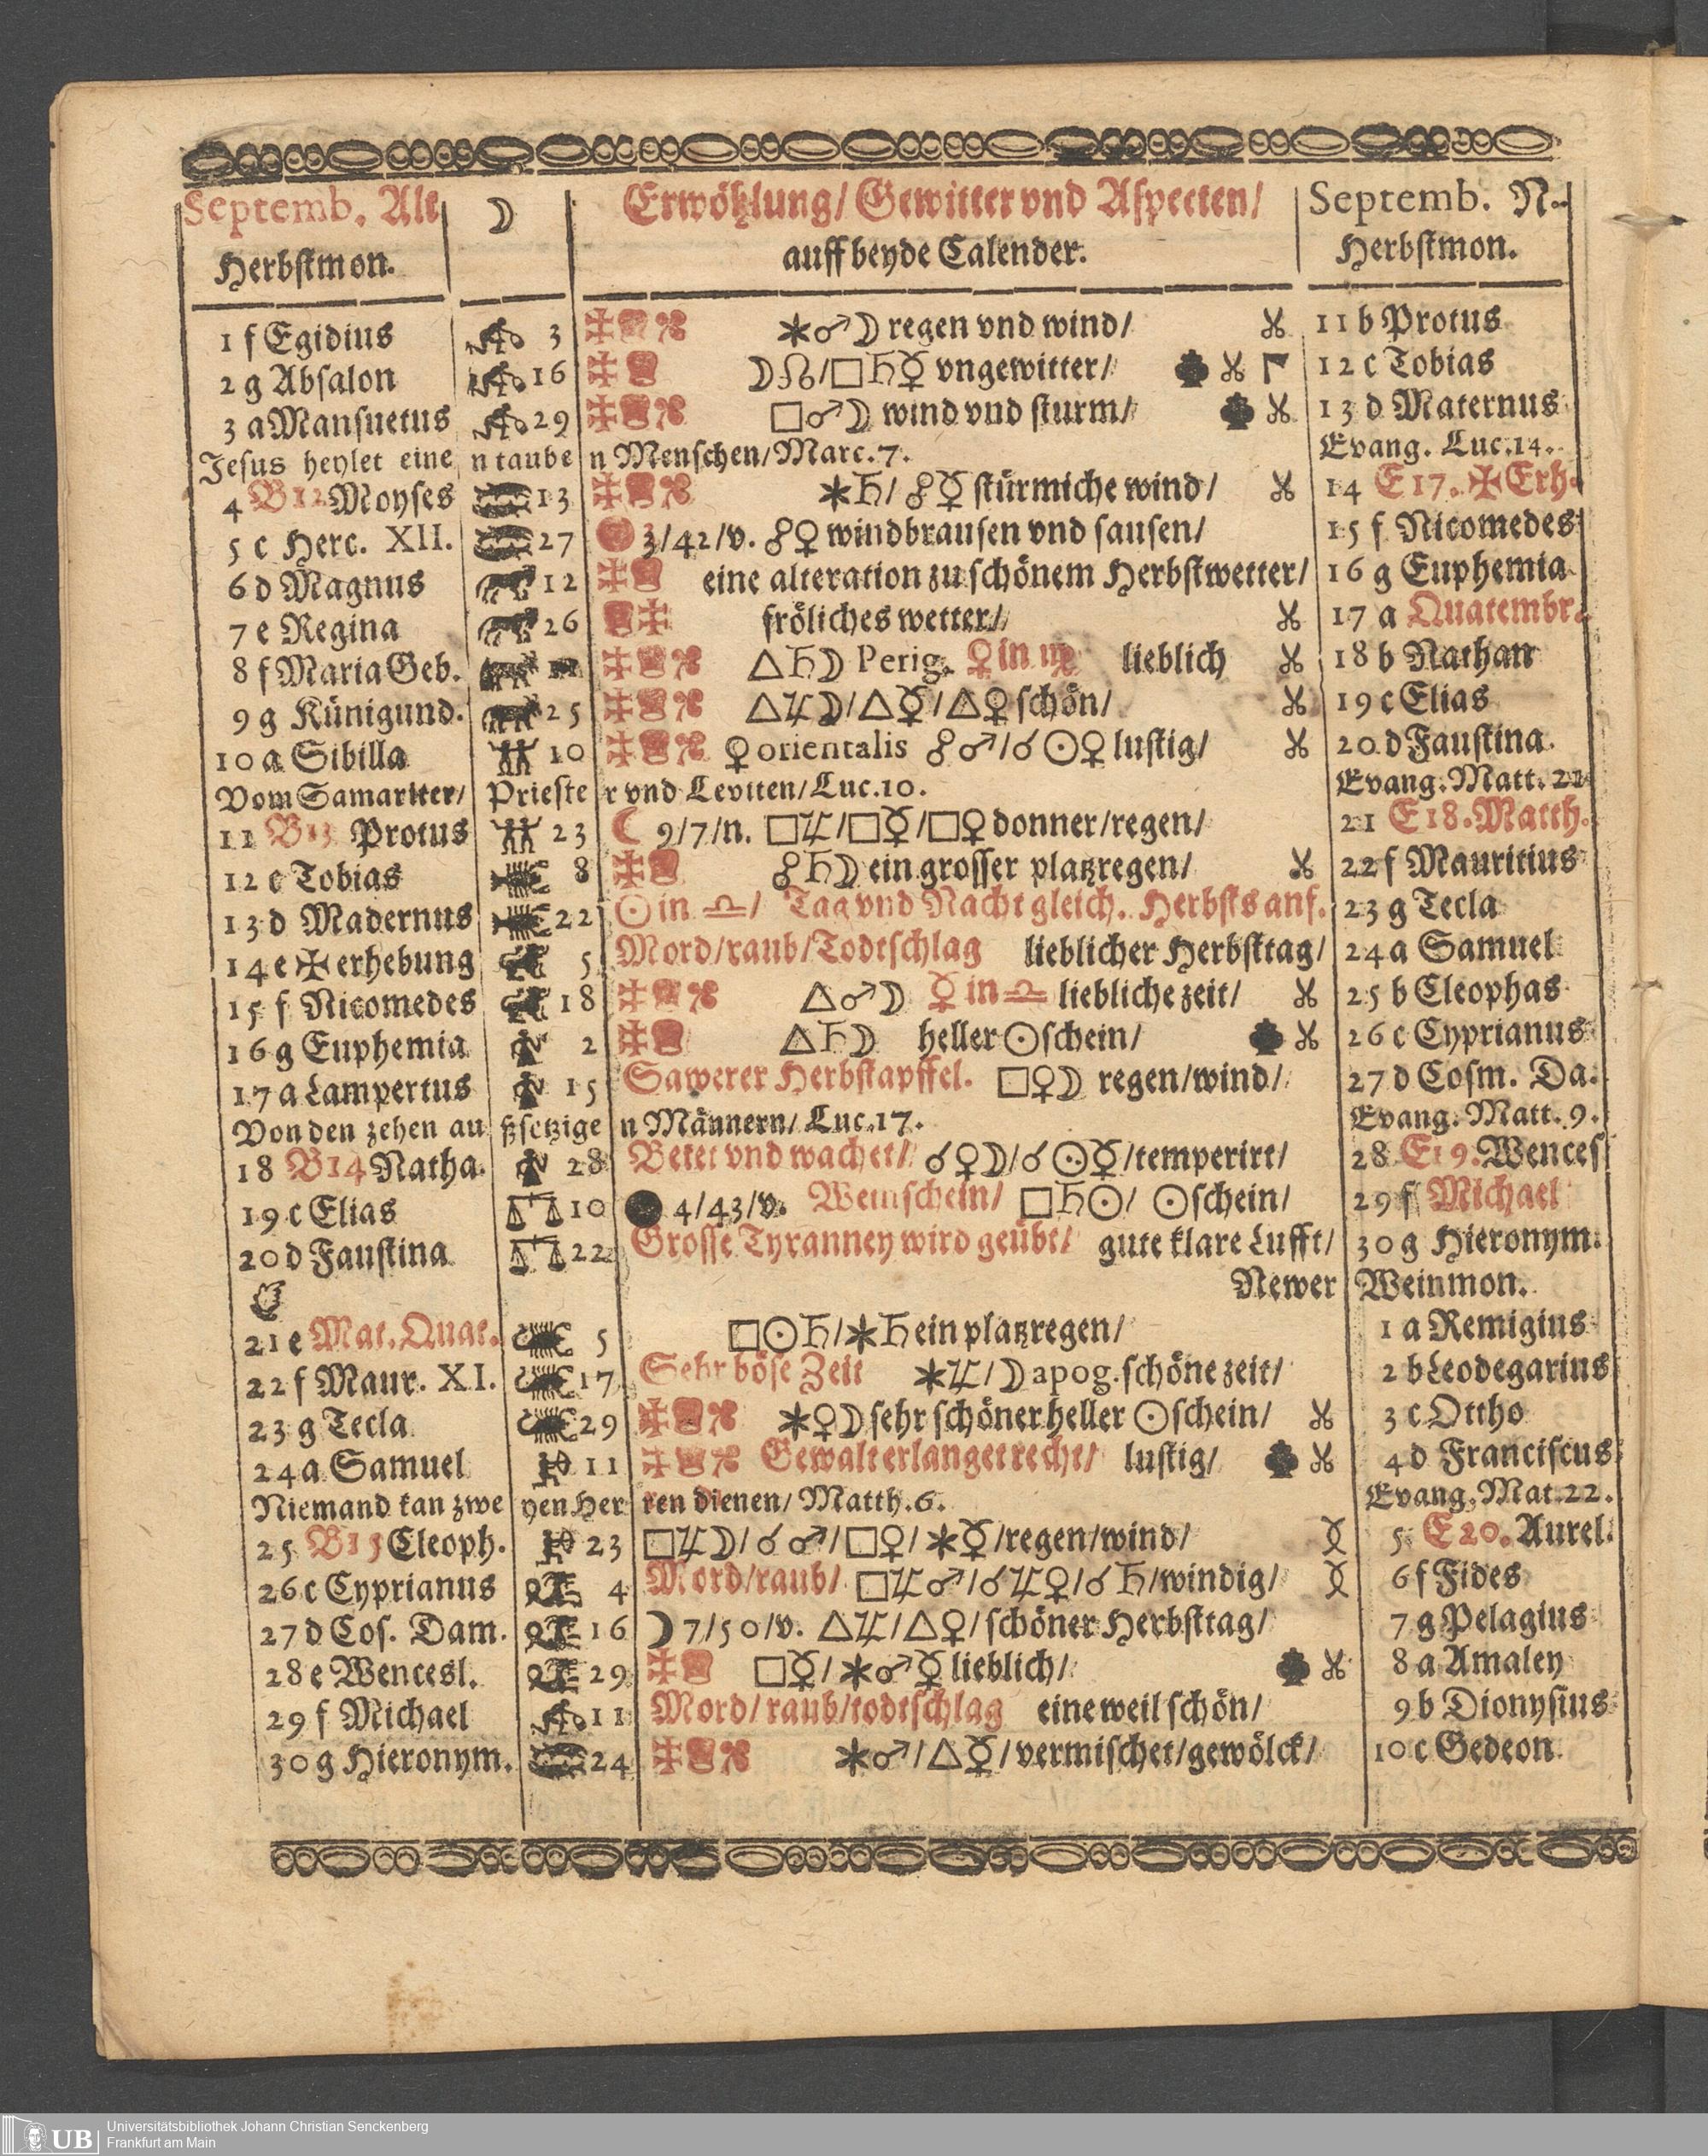 Septemb. Alt ☽ Erwöhlung/ Gewitter vnd Aspecten/ Septemb. N.
Herbstmon. auff beyde Calender. Herbstmon.
1 f Egidius 3 ⚹♂☽ regen vnd wind/ 11 b Protus
2 g Absalon 16 ☽☊/□♄☿ vngewitter/ 12 c Tobias
3 a Mansuetus 29 □♂☽ wind vnd sturm/ 13 d Maternus
Jesus heylet eine n taube n Menschen/ Marc. 7. Evang. Luc. 14.
4 B 12 Moyses 13 ⚹♄/ ☍☿ stürmiche wind/ 14 E 17. ✠ Erh.
5 c Herc. XII. 27 3/42/v. ☍♀ windbrausen vnd sausen/ 15 f Nicomedes
6 d Magnus 12 eine alteration zu schönem Herbstwetter/ 16 g Euphemia
7 e Regina 26 fröliches wetter/ 17 a Quatembr.
8 f Maria Geb. △♄☽ Perig. ♀ in ♍ lieblich 18 b Nathan
9 g Künigund. 25 △♃☽/△☿/△♀ schön/ 19 c Elias
10 a Sibilla 10 ♀ orientalis ☍♂/☌☉♀ lustig/ 20 d Faustina
Vom Samariter/ Prieste r vnd Leviten/ Luc. 10. Evang. Matt. 22
11 B 13 Protus 23 ☾ 9/7/n. □♃/□☿/□♀ donner/regen/ 21 E 18. Matth.
12 c Tobias 8 ☍♄☽ ein grosser platzregen/ 22 f Mauritius
13 d Madernus 22 ☉ in ♎/ Tag vnd Nacht gleich. Herbsts anf. 23 g Tecla
14 e ✠ erhebung 5 Mord/raub/Todtschlag lieblicher Herbsttag/ 24 a Samuel
15 f Nicomedes 18 △♂☽ ☿ in ♎ liebliche zeit/ 25 b Cleophas
16 g Euphemia 2 △♄☽ heller ☉schein/ 26 c Cyprianus
17 a Lampertus 15 Sawerer Herbstapffel. □♀☽ regen/wind/ 27 d Cosm. Da.
Von den zehen au ßsetzige n Männern/ Luc. 17. Evang. Matt. 9.
18 B 14 Natha. 28 Betet vnd wachet/ ☌♀☽/☌☉☿/temperirt/ 28 E 19. Wencesl
19 c Elias 10 4/43/v. Weinschein/ □♄☉/ ☉schein/ 29 f Michael
20 d Faustina 22 Grosse Tyranney wird geübt/ gute klare Lufft/ 30 g Hieronym.
Newer Weinmon.
21 e Mat. Quat. 5 □☉♄/⚹♄ ein platzregen/ 1 a Remigius
22 f Maur. XI. 17 Sehr böse Zeit ⚹♃/☽ apog. schöne zeit/ 2 b Leodegarius
23 g Tecla 29 ⚹♀☽ sehr schöner heller ☉schein/ 3 c Ottho
24 a Samuel 11 Gewalt erlanget recht/ lustig/ 4 d Franciscus
Niemand kan zwe yen Her ren dienen/ Matth. 6. Evang. Mat. 22.
25 B 15 Cleoph. 23 □♃☽/☌♂/□♀/⚹☿/regen/wind/ 5 E 20. Aurel.
26 c Cyprianus 4 Mord/raub/ □♃♂/☌♃♀/☌♄/windig/ 6 f Fides
27 d Cos. Dam. 16 ☽ 7/50/v. △♃/△♀/schöner Herbsttag/ 7 g Pelagius
28 e Wencesl. 29 □☿/⚹♂☿ lieblich/ 8 a Amaley
29 f Michael 11 Mord/raub/todtschlag eine weil schön/ 9 b Dionysius
30 g Hieronym. 24 ⚹♂/△☿/vermischet/gewölck/ 10 c Gedeon
UB Universitätsbibliothek Johann Christian Senckenberg
Frankfurt am Main